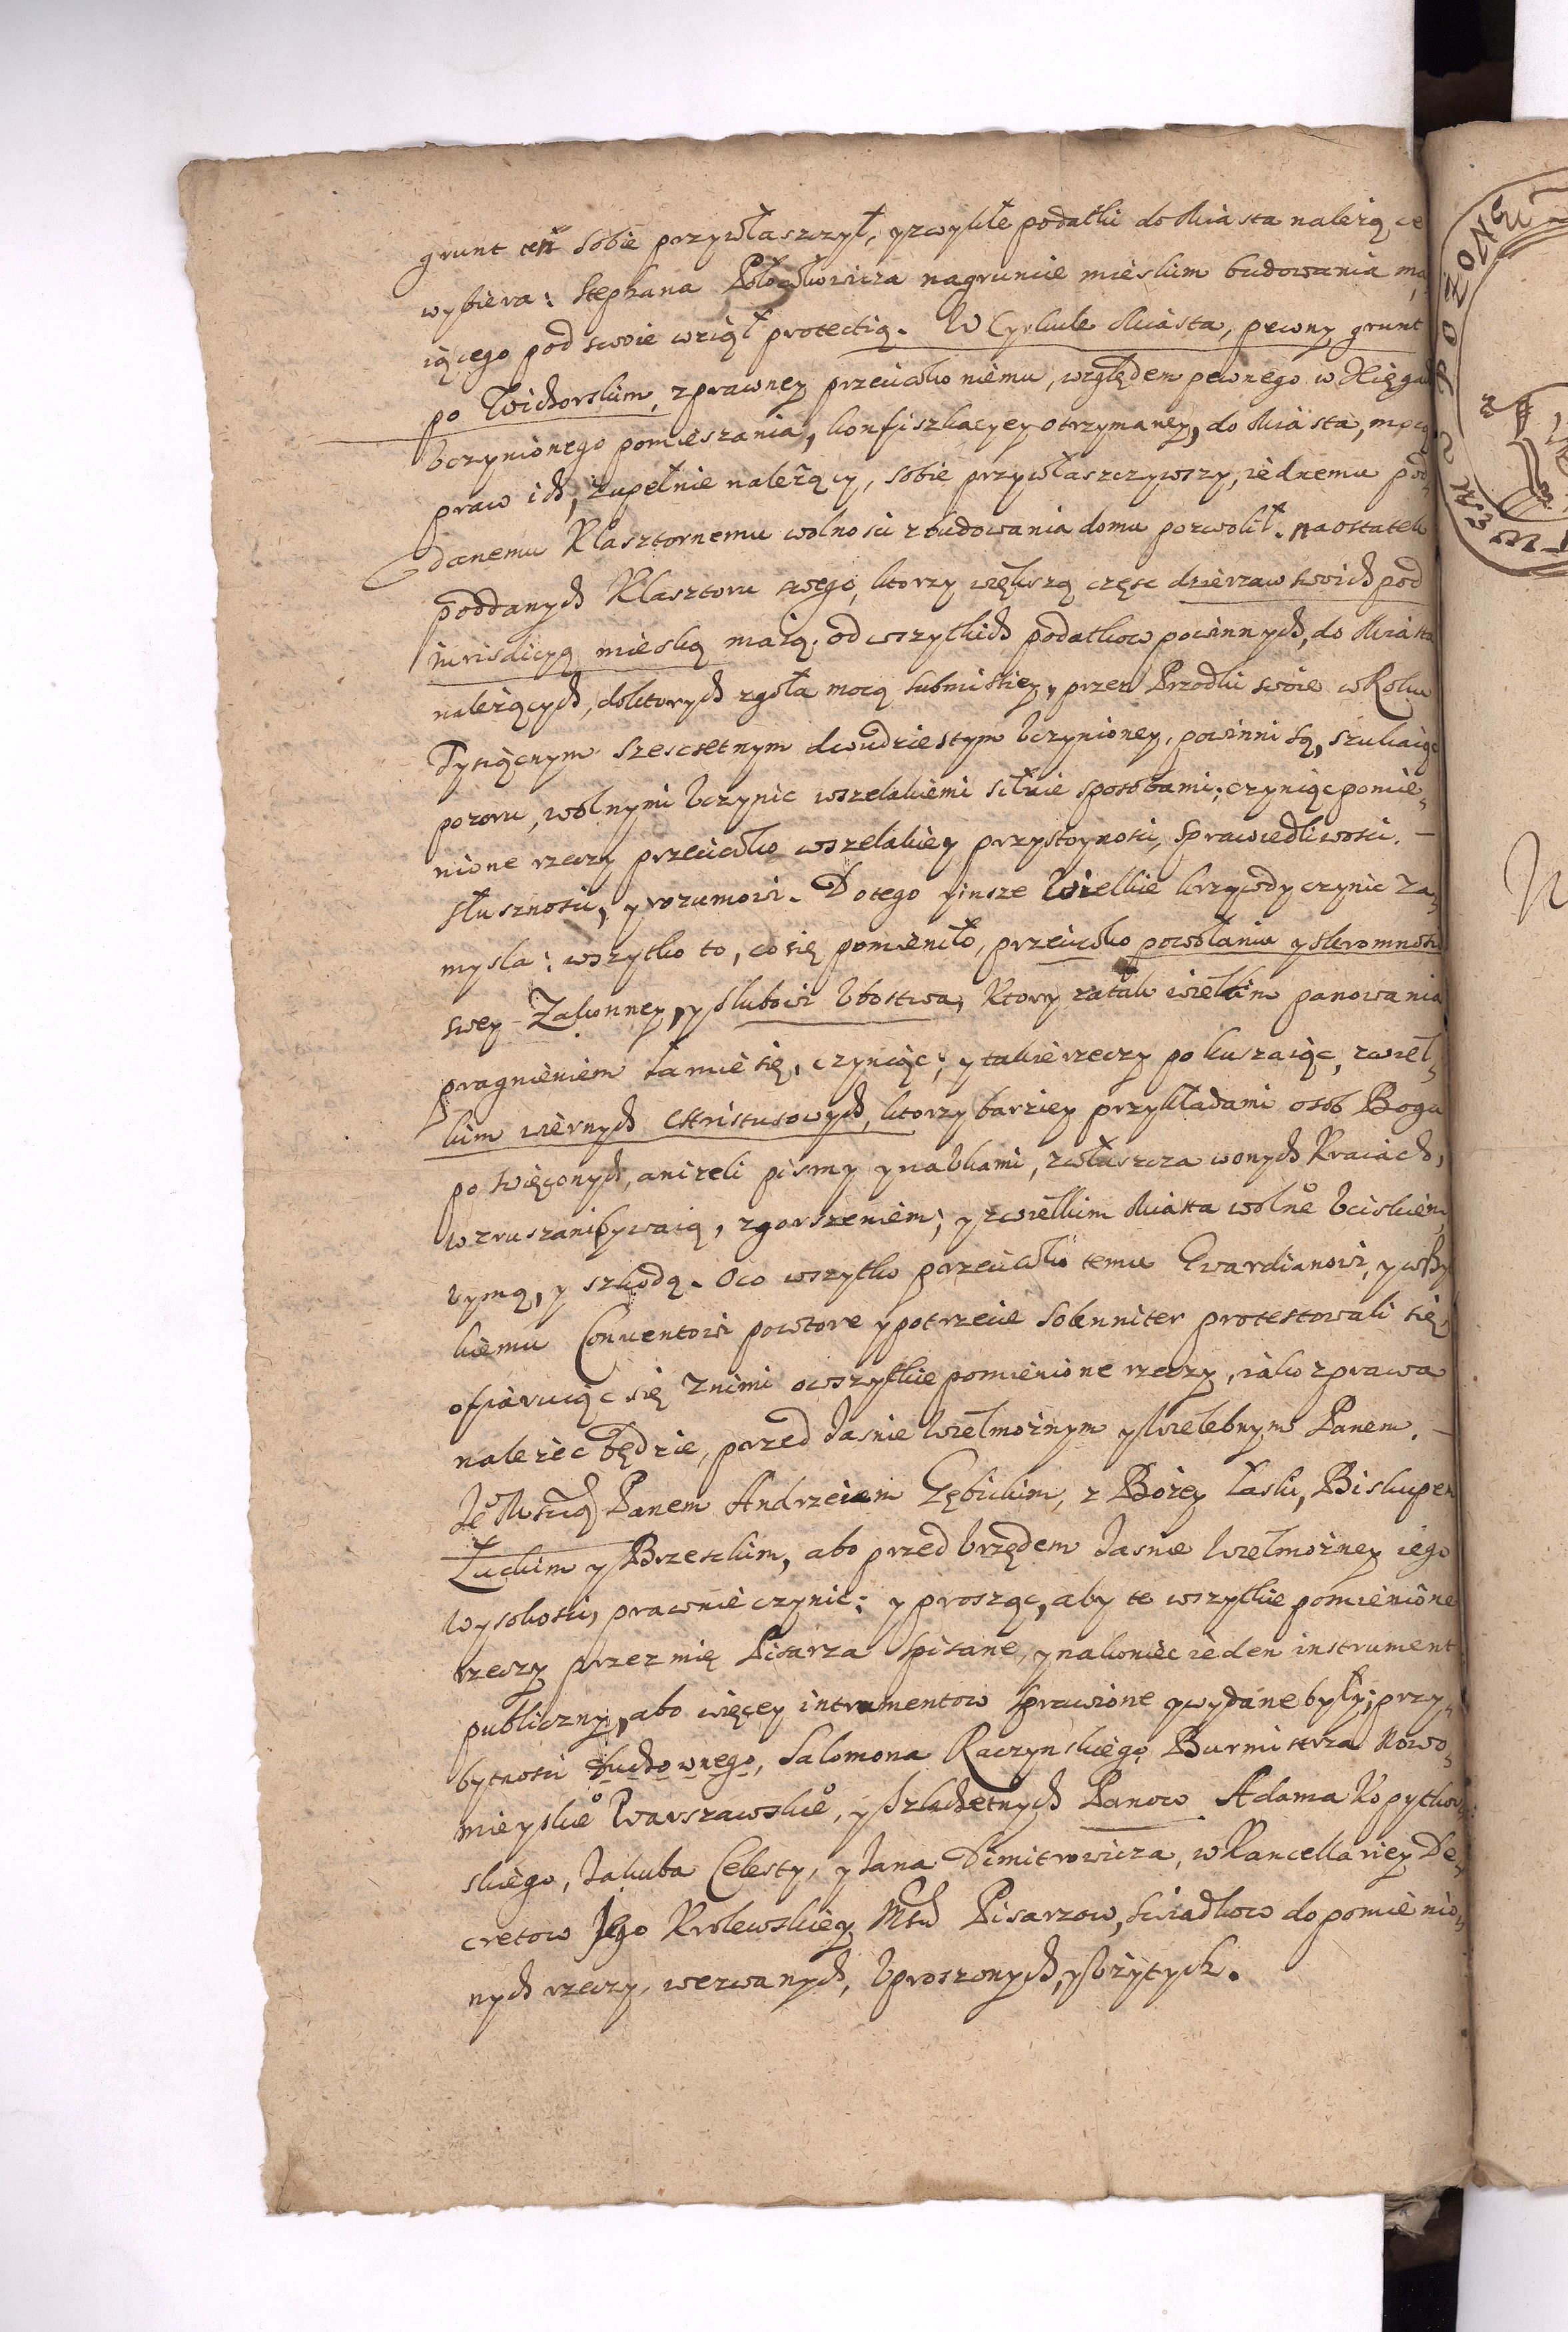 grunt ten sobie przywłaszczył, y zwykłe podatki do Miasta należące
wybiera: Stephana nagruncie mieskim budowania ma,
iącego pod swoie wziął protectią. W Cyrkule Miasta, pewny grunt
po Wichorskim, z prawney przeciwko niemu, względem pewnego w Xięgach
vczynionego pomieszania, konfiszkacyey otrzymaney, do Miasta, mocą
praw ich, zupełnie należący, sobie przywłaszczywszy, iednemu pod,
danemu Klasztornemu wolności zbudowania domu pozwolił. Naostatek
poddanych Klasztoru swego, ktorzy większą częsc dzierzaw swoich pod
iurisdicyą mieską maią. od wszytkich podatkow powinnych, do Miasta
należących, do ktorych zgoła mocą submissiey, przez Przodki swoie w Roku
Tysiącnym szescsetnym dwudziestym vczynioney, powinni są, szukaiąc
pozoru, wolnymi vczynic wszelakiemi silnie sposobami; czyniąc pomie,
nione rzeczy przeciwko wszelakiey przystoynosci, sprawiedliwosci. —
słusznosci, y rozumowi. Do tego y insze wielkie krzywdy czynic za,
mysla: wszytko to, co się pomieniło, przeciwko powołaniu y skromnosci
swey Zakonney, y slubowi vbostwa, Ktory za tak wielkim panowania
pragnieniem łamie się, czyniąc; y takie rzeczy pokuszaiąc, z wiel,
kim wiernych Christusowych, ktorzy barziey przykładami osob Bogu
poswięconych, anizeli pismy y naukami, zwłaszcza w onych Kraiach,
wzruszani bywaią, zgorszeniem; y z wielkim Miasta wolne° vciskiem,
vymą, y szkodą. Oco wszytko przeciwko temu Gwardianowi, y wszy
kiemu Conuentowi powtore y potrzecie solenniter protestowali się,
ofiaruiąc się z nimi o wszytkie pomienione rzeczy, iako z prawa
należec będzie, przed Jasnie Wielmożnym y Wielebnym Panem. —
Je° Mscią Panem Andrzeiem Gębickim, z Bożey łaski, Biskupem
Łuckim y Brzeskim, abo przed vrzędem Jasnie Wielmożney iego
Wysokosci, prawnie czynic: y prosząc, aby te wszytkie pomienione
rzeczy przez mię Pisarza spisane, y nakoniec ieden instrument
publiczny, abo więcey intrumentow sprawione y wydane były; przy,
bytnosci Salomona Raczynskiego Burmistrza Nowo,
mieyskie° Warszawskie°, y szlachetnych Panow Adama Kopytkow,
skiego, Jakuba Celesty, y Jana Dimitrowicza, w Kancellariey De,
cretow Jego Krolewskiey Msci Pisarzow, swiadkow do pomienio,
nych rzeczy, wezwanych, vproszonych, y vżytych.